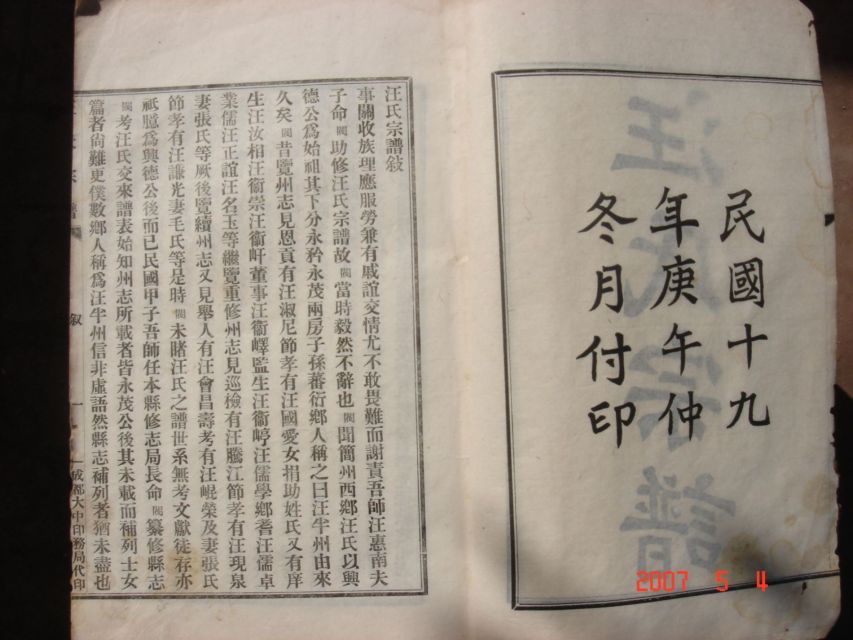 民國十九
年庚午仲
冬月付印
汪氏宗譜
2007 5 4
汪氏宗譜敍
事關收族理應服勞兼有戚誼交情尤不敢畏難而謝責吾師汪惠南夫
子命閣助修汪氏宗譜故閣當時毅然不辭也閣聞簡州西鄉汪氏以興
德公爲始祖其下分永矜永茂兩房子孫蕃衍鄉人稱之曰汪半州由來
久矣閣昔覽州志見恩貢有汪淑尼節孝有汪國愛女捐助姓氏又有庠
生汪汝相汪衞崇汪衞皯董事汪衞嶧監生汪衞崞汪儒學鄉耆汪儒卓
業儒汪正誼汪名玉等繼覽重修州志見巡檢有汪騰江節孝有汪現泉
妻張氏等厥後覽續州志又見舉人有汪會昌壽考有汪崐榮及妻張氏
節孝有汪謙光妻毛氏等是時閣未賭汪氏之譜世系無考文獻徒存亦
祇臆爲興德公後而已民國甲子吾師任本縣修志局長命閣纂修縣志
閣考汪氏交來譜表始知州志所載者皆永茂公後其未載而補列士女
篇者尙難更僕數鄉人稱爲汪半州信非虛語然縣志補列者猶未盡也
宗譜
叙
一
成都大中印務局代印